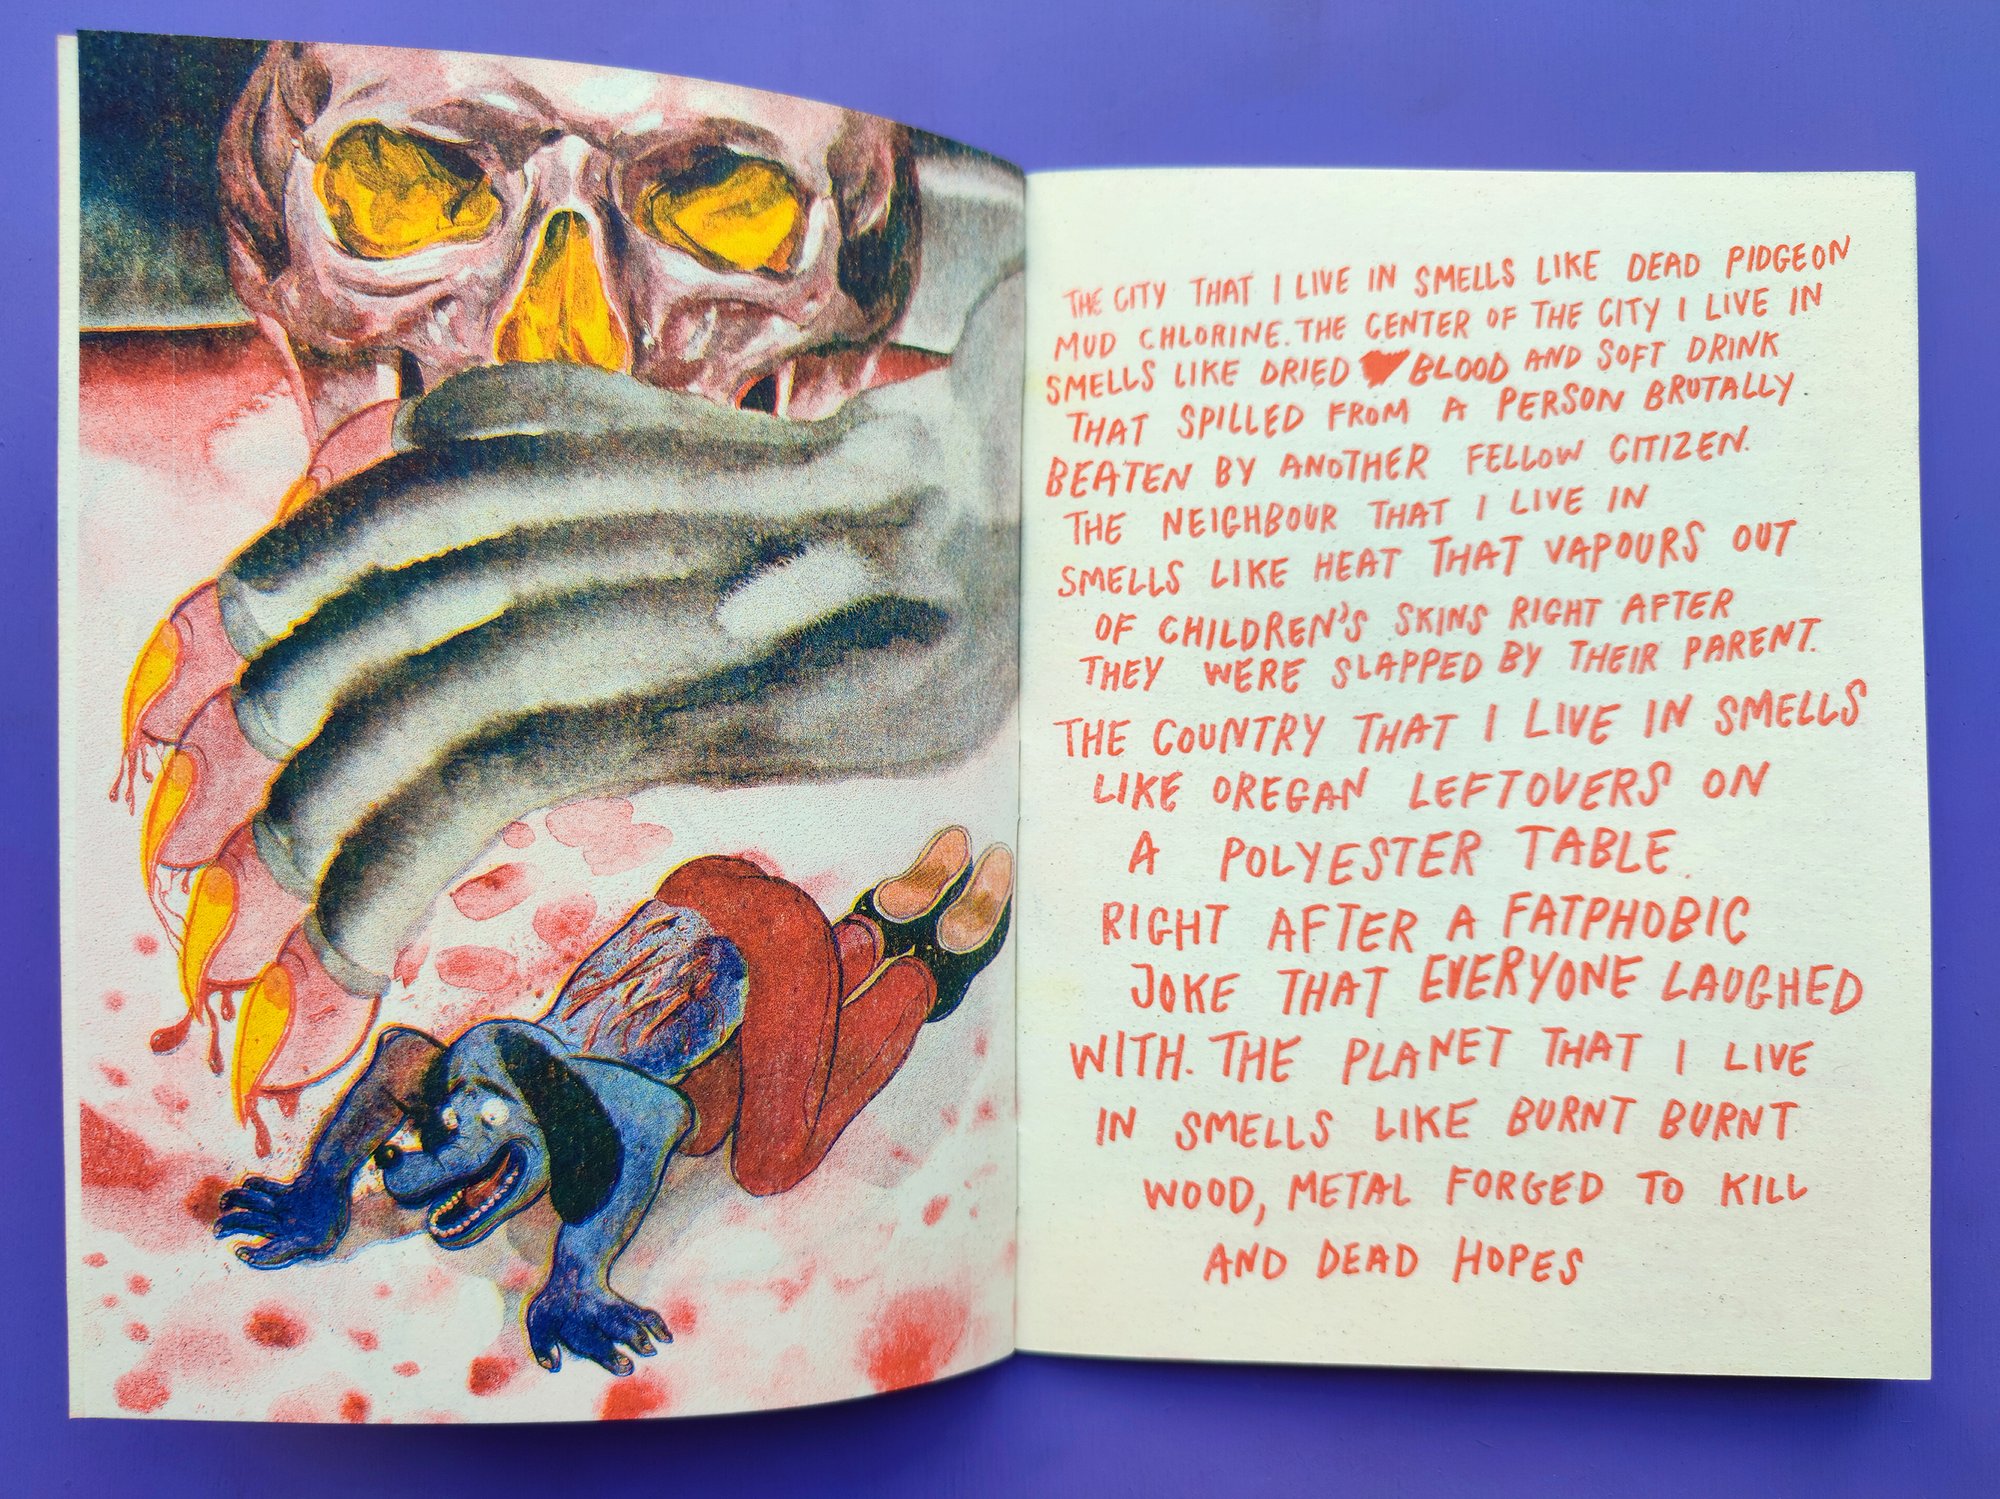 THE CITY THAT I LIVE IN SMELLS LIKE DEAD PIDGEON
MUD CHLORINE. THE CENTER OF THE CITY I LIVE IN
SMELLS LIKE DRIED ♥ BLOOD AND SOFT DRINK
THAT SPILLED FROM A PERSON BRUTALLY
BEATEN BY ANOTHER FELLOW CITIZEN.
THE NEIGHBOUR THAT I LIVE IN
SMELLS LIKE HEAT THAT VAPOURS OUT
OF CHILDREN'S SKINS RIGHT AFTER
THEY WERE SLAPPED BY THEIR PARENT.
THE COUNTRY THAT I LIVE IN SMELLS
LIKE OREGAN LEFTOVERS ON
A POLYESTER TABLE.
RIGHT AFTER A FATPHOBIC
JOKE THAT EVERYONE LAUGHED
WITH. THE PLANET THAT I LIVE
IN SMELLS LIKE BURNT BURNT
WOOD, METAL FORGED TO KILL
AND DEAD HOPES